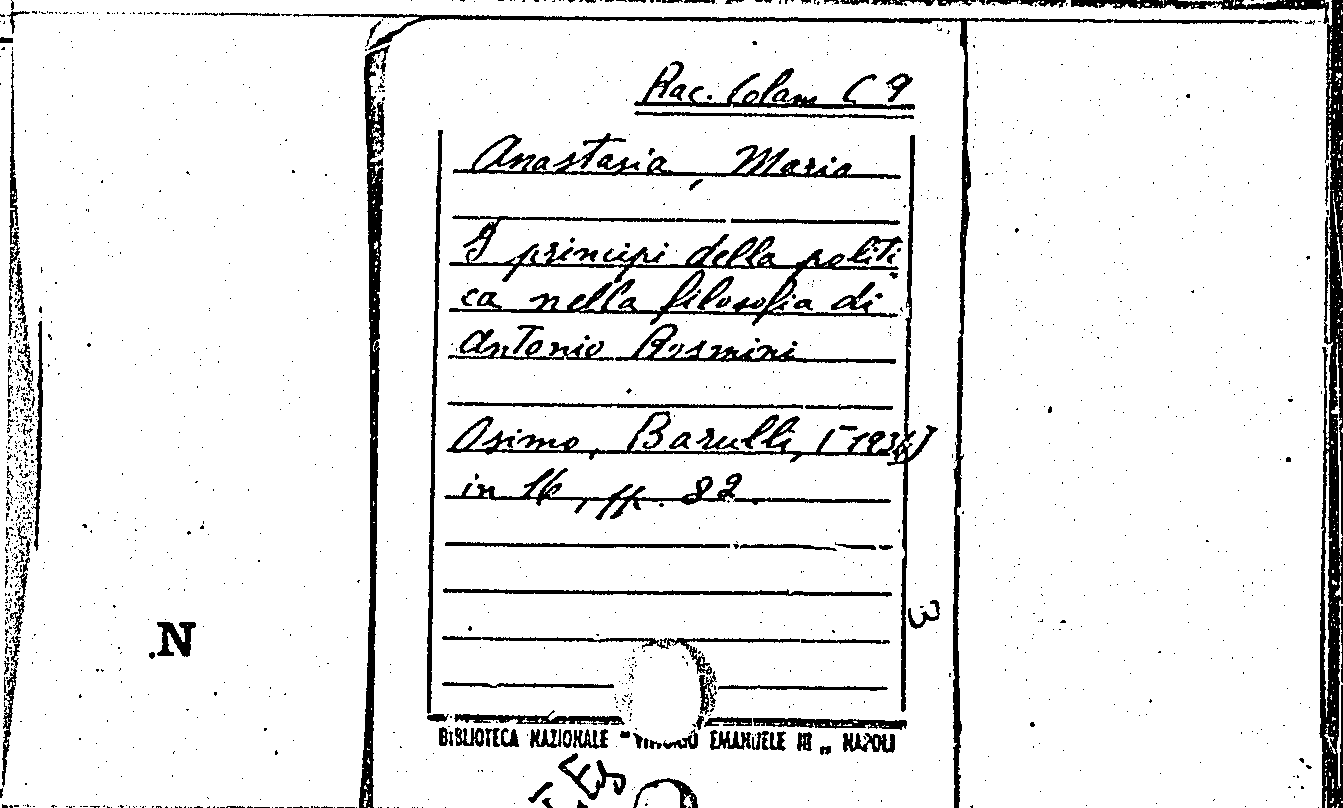 Rac. Colam C 9
Anastasia, Maria
I principi della politi
ca nella filosofia di
Antonio Rosmini
Osimo, Barulli, [1936]
in 16, pp. 82.
3
.N
BIBLIOTECA NAZIONALE "VITTORIO EMANUELE III„ NAPOLI